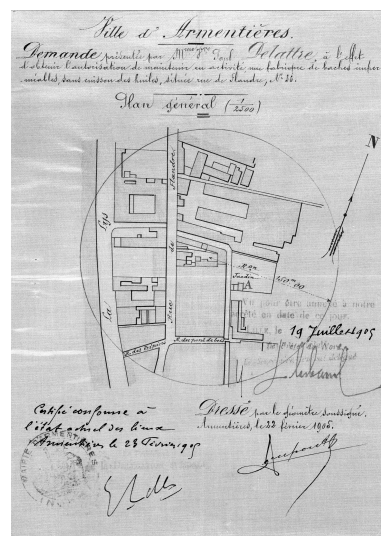 Ville d'Armentières.
Demande présentée par Mme Vve Paul Delattre, à l'effet
d'obtenir l'autorisation de maintenir en activité une fabrique de baches imper
méables, sans cuisson des huiles, située rue de Flandre, N° 36.
Plan général (1/2500)
N
La Lys
Rue de Flandre
Jardin
A
Rayon 100
pour être annexé à notre
arrêté en date de ce jour.
le 19 Juillet 1905
Certifié conforme à
l'état actuel des lieux
Armentières le 23 Février 1905
Dressé par le géomètre soussigné.
Armentières, le 22 février 1905.